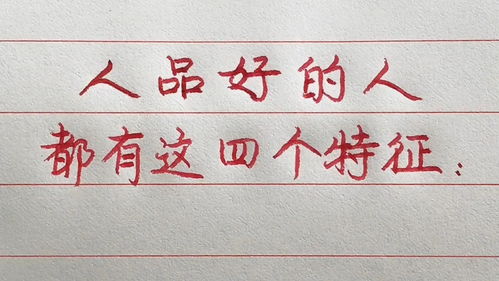 人品好的人
都有这四个特征：